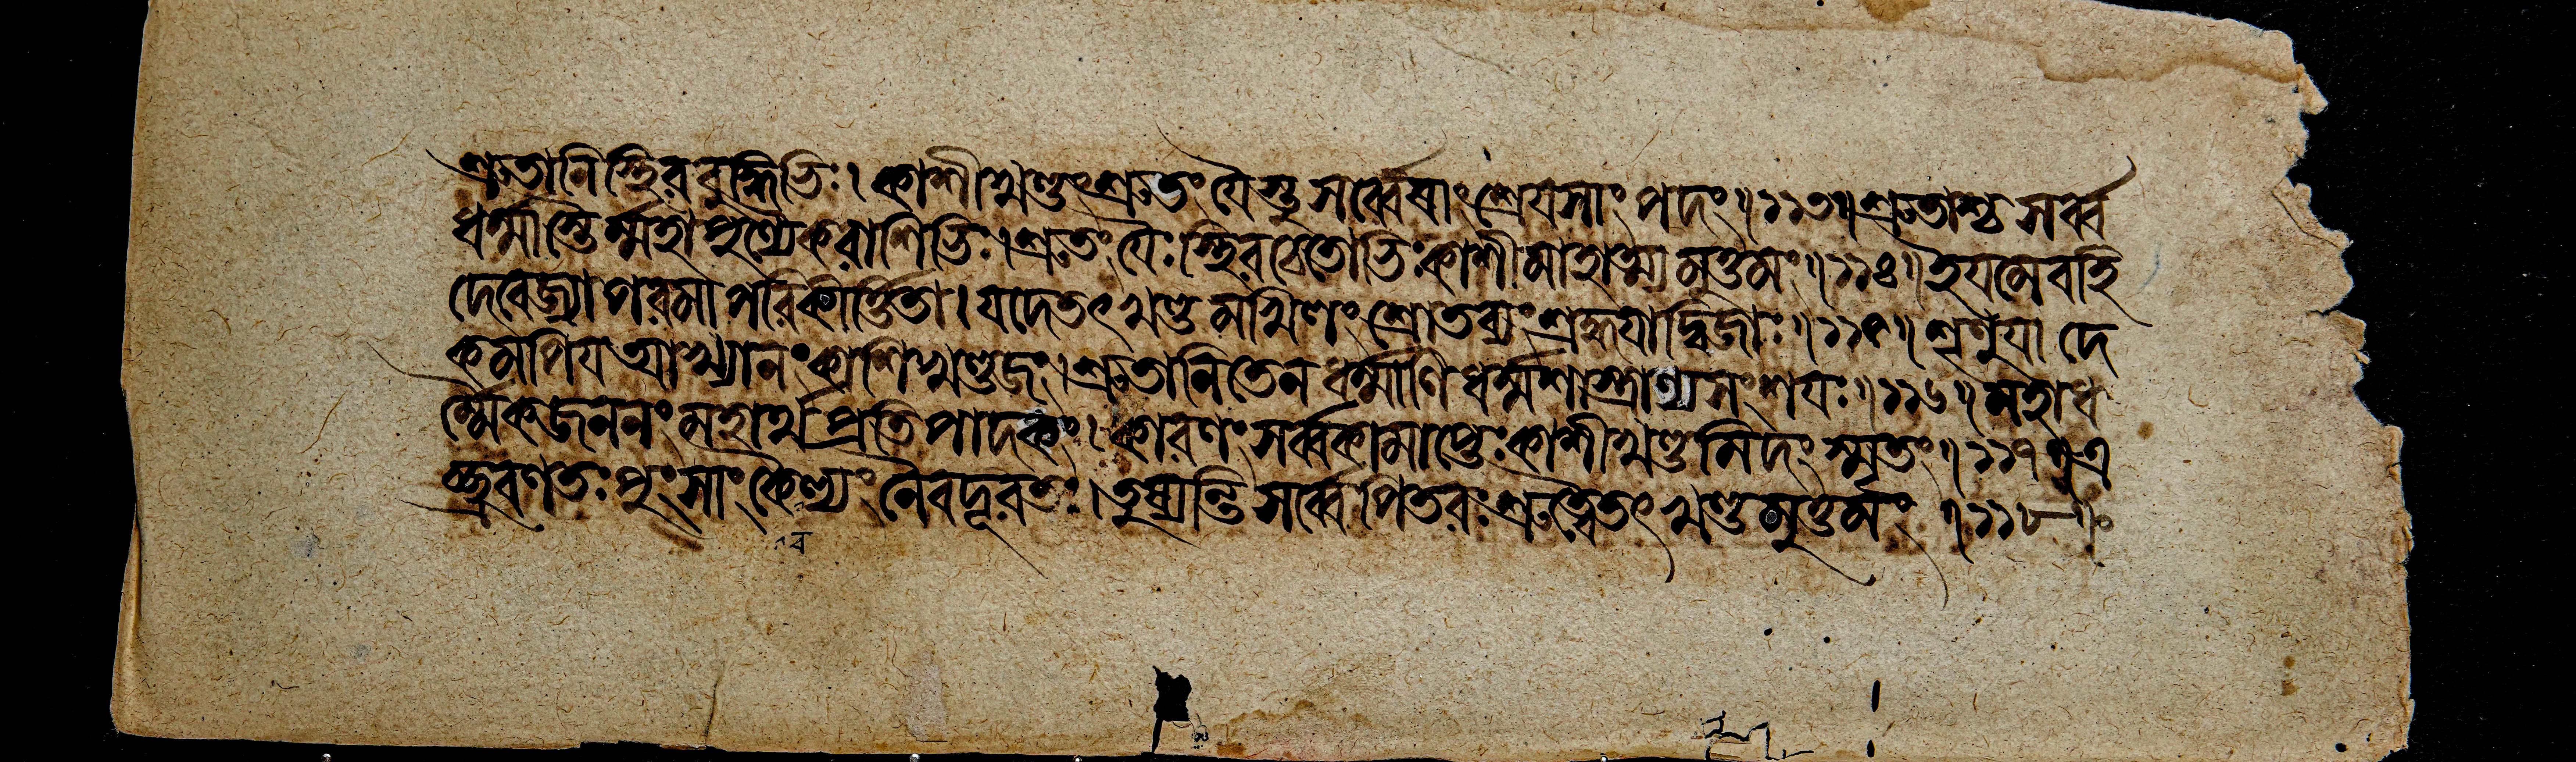 শ্রুতানি স্থিরবুদ্ধিভিঃ। কাশীখণ্ডং শ্রুতং যৈস্তু সর্ব্বেষাং শ্রেয়সাং পদং॥১১৩॥ শ্রুতাশ্চ সর্ব্ব
ধর্ম্মাস্তৈর্ম্মহাপুণ্যৈকরাশিভিঃ। শ্রুতং যৈঃ স্থিরচেতোভিঃ কাশীমাহাত্ম্যমুত্তমং॥১১৪॥ ইয়মেব হি
দেবেজ্যা পরমা পরিকীর্ত্তিতা। যদেতৎ খণ্ডমখিলং শ্রোতব্যং শ্রদ্ধয়া দ্বিজাঃ॥১১৫॥ শৃণুয়াদে
কমপি য আখ্যানং কাশিখণ্ডজং। শ্রুতানি তেন ধর্ম্মাণি ধর্ম্মশাস্ত্রাণ্যসংশয়ঃ॥১১৬॥ মহাধ
র্ম্মৈকজননং মহার্থপ্রতিপাদকং। কারণং সর্ব্বকামাপ্তেঃ কাশীখণ্ডমিদং স্মৃতং॥১১৭॥ এ
তচ্ছ্রবণতঃ পুংসাং কৈল্যং নৈব দূরতঃ। তুষ্যন্তি সর্ব্বে পিতরঃ শ্রুত্বৈতৎ খণ্ডমুত্তমং॥১১৮॥
ব